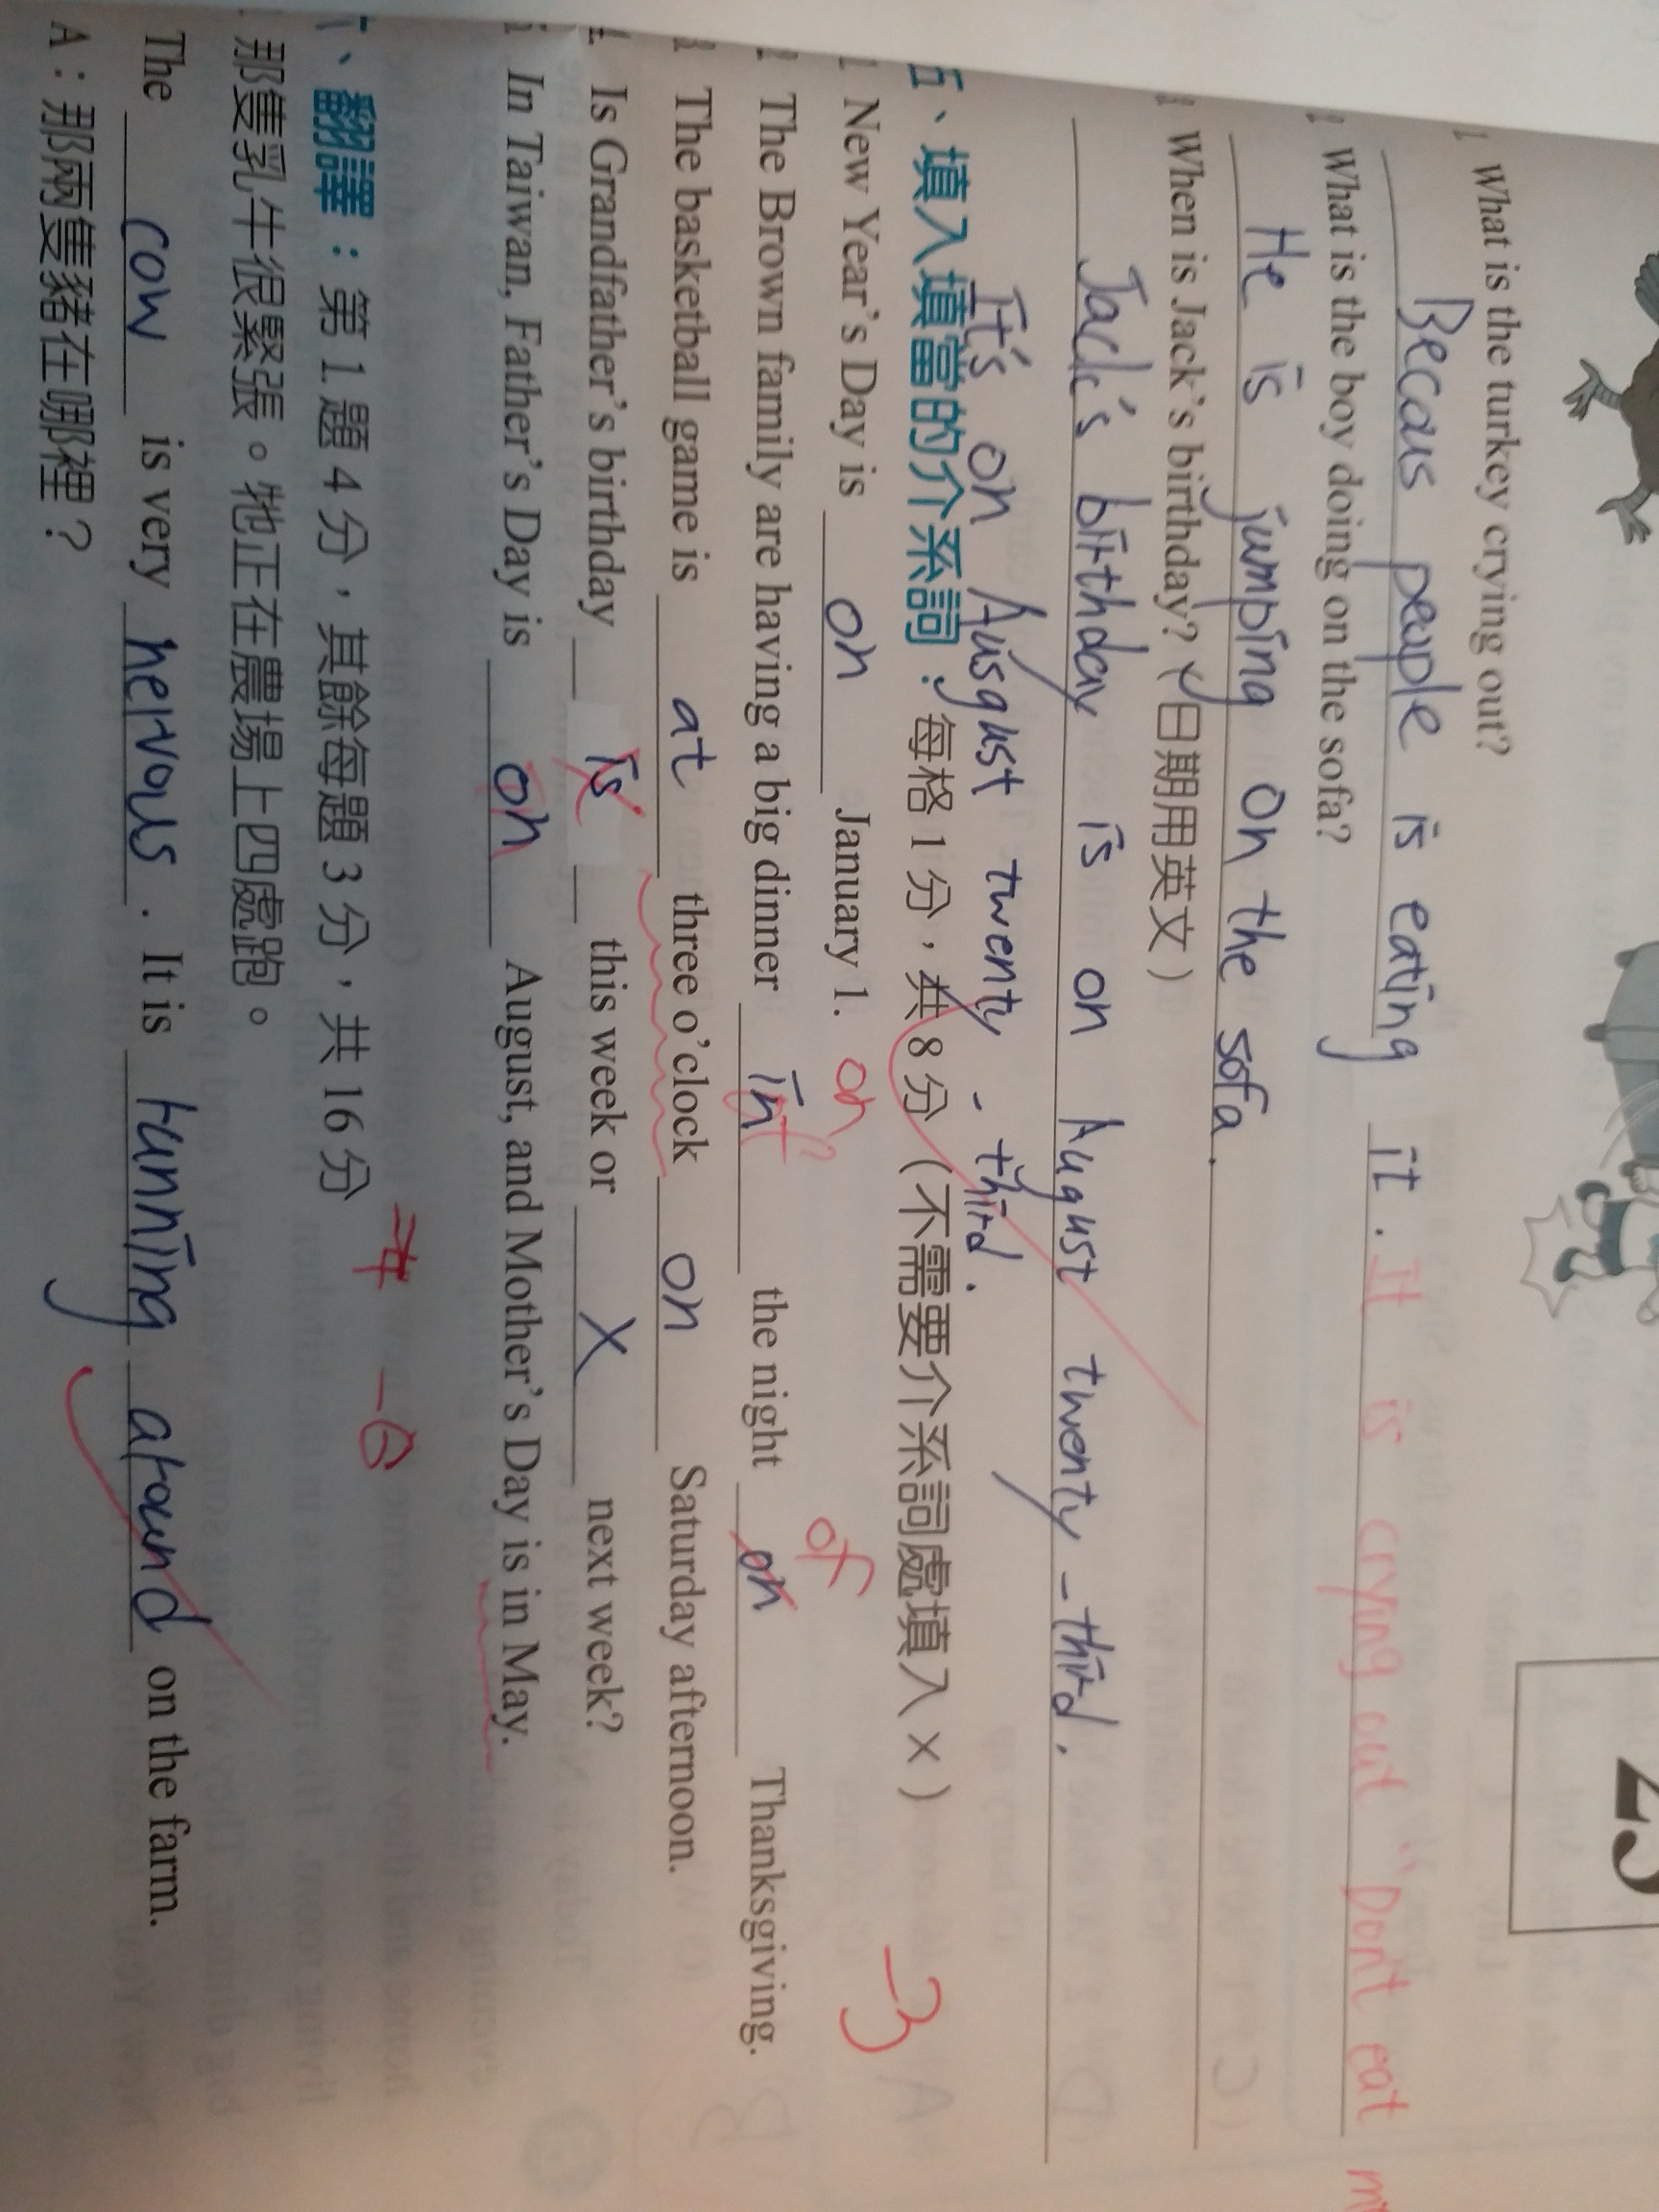 What is the turkey crying out?
Becaus people is eating it. It is crying out "Don't eat
What is the boy doing on the sofa?
He is jumping on the sofa.
When is Jack's birthday? (日期用英文)
Jack's birthday is on August twenty-third.
It's on August twenty-third.
五、填入填當的介系詞：每格 1 分，共 8 分（不需要介系詞處填入 ×）
-3
New Year's Day is on January 1.
on of
The Brown family are having a big dinner in the night on Thanksgiving.
The basketball game is at three o'clock on Saturday afternoon.
Is Grandfather's birthday is this week or X next week?
In Taiwan, Father's Day is on August, and Mother's Day is in May.
、翻譯：第 1 題 4 分，其餘每題 3 分，共 16 分 -6
那隻乳牛很緊張。牠正在農場上四處跑。
The cow is very nervous. It is running around on the farm.
A：那兩隻豬在哪裡？